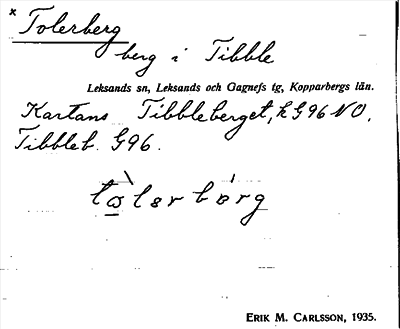 x Tolerberg
berg i Tibble
Leksands sn, Leksands och Gagnefs tg, Kopparbergs län.
Kartans Tibbleberget, k G96 NO.
Tibbleb. G96.
ERIK M. CARLSSON, 1935.